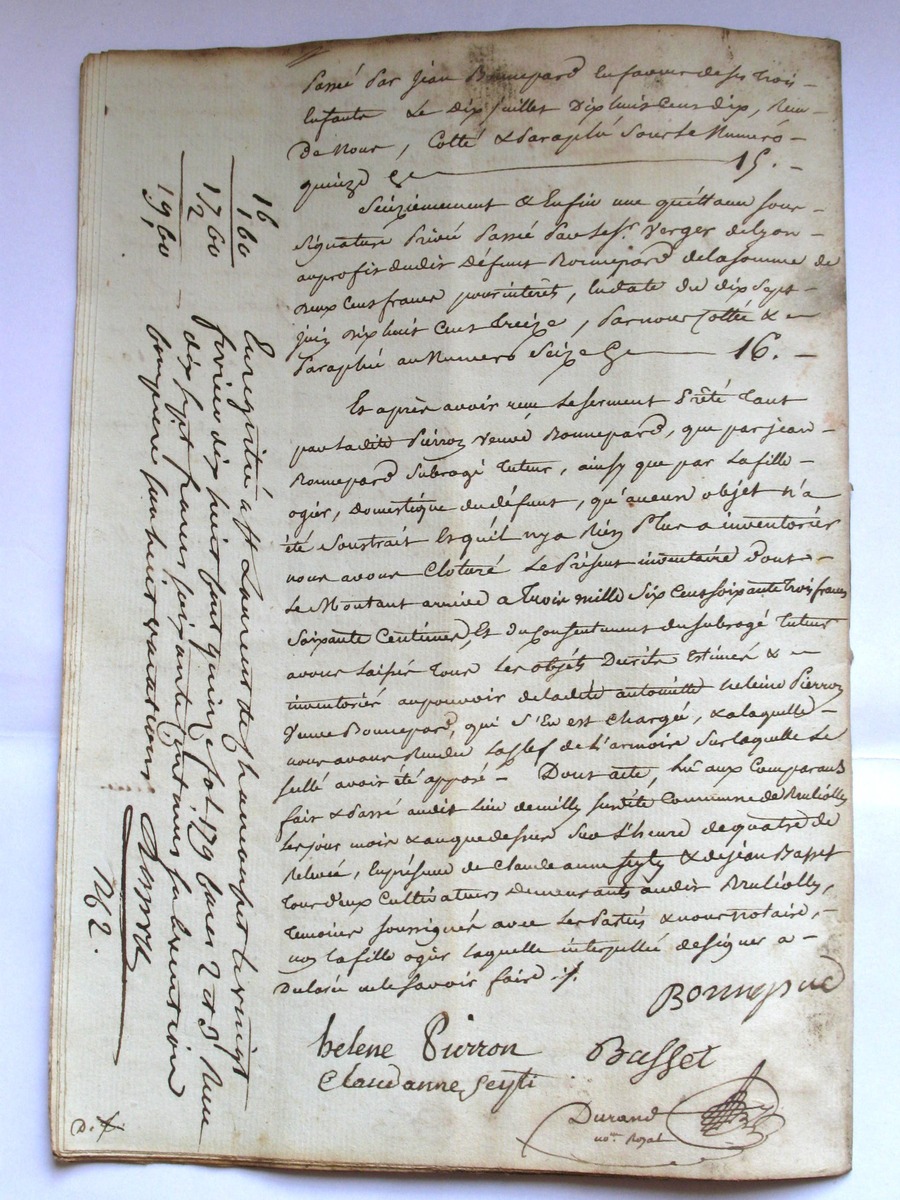 Passé Par jean Bonnepard En faveur de ses trois
Enfants Le Dix juillet Dix huit Cent dix, Reçu
De Nous, Cotté & Paraphé Sous Le Numéro
quinze 15.
Seiziemement & Enfin une quittance sous
signature Privée Passée Par le Sr. Verger de Lyon
au profit dudit Défunt Bonnepard de la somme de
deux Cent francs pour intérêts, En date du dix Sept
juin dix huit Cent treize, Par nous Cottée &
Paraphée au Numero Seize 16.
Et après avoir reçu Le serment Prêté tant
par Ladite Pierron Veuve Bonnepard, que par jean
Bonnepard Subrogé tuteur, ainsy que par La fille
ogier, Domestique du défunt, qu'aucun objet n'a
été Soustrait Et qu'il n'y a Rien Plus a inventorier
nous avons Cloturé Le Présent inventaire Dont
Le Montant arrive a trois mille Six Cent soixante trois francs
Soixante Centimes, Et du Consentement du subrogé tuteur
avons Laissé tous Les objets Decrits Estimés &
inventoriés au pouvoir de ladite antoinette heleine Pierron
Veuve Bonnepard, qui S'En est Chargée, & a laquelle
nous avons Rendu La Clef de L'armoire Sur laquelle Le
scellé avoit été apposé - Dont acte, Lû aux Comparants
fait & Passé audit Lieu de milly Susdite Commune de Brullioles
Les jour mois & an que dessus Sur L'heure de quatre de
Relevée, En présence de Claude anne Seyty & de jean Basset
tous deux Cultivateurs demeurants audit Brullioles,
temoins soussignés avec Les Parties & nous notaire,
non la fille ogier laquelle interpellée de signer a
Declaré ne le Savoir faire ./.
Bonnepard
helene Pierron Basset
Claud anne Seyti
Durand
nore. Royal
16
160
1760
172
1960
Enregistré à St Laurent de Chamousset le vingt
fevrier dix huit cent quinze fol. 179 cases 2 et 3 Reçu
dix sept francs soixante centimes subvention
comprise pour huit vacations
762.